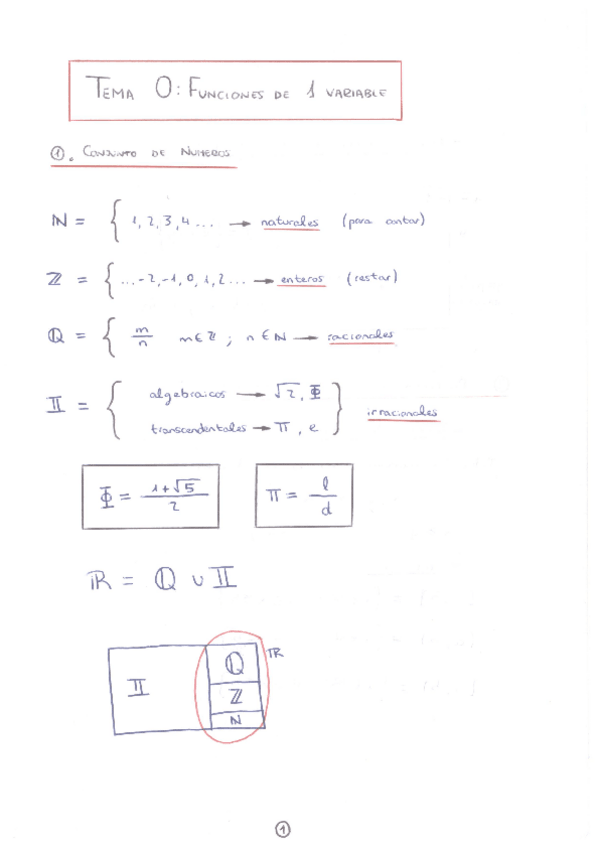 TEMA 0: FUNCIONES DE 1 VARIABLE
①. CONJUNTO DE NUMEROS
ℕ = { 1, 2, 3, 4 ... → naturales (para contar)
ℤ = { ... -2, -1, 0, 1, 2 ... → enteros (restar)
ℚ = { m/n m ∈ ℤ ; n ∈ ℕ → racionales
𝕀 = { algebraicos → √2, Φ
transcendentales → π, e } irracionales
Φ = (1+√5)/2
π = l/d
ℝ = ℚ ∪ 𝕀
𝕀
ℚ
ℝ
ℤ
ℕ
①